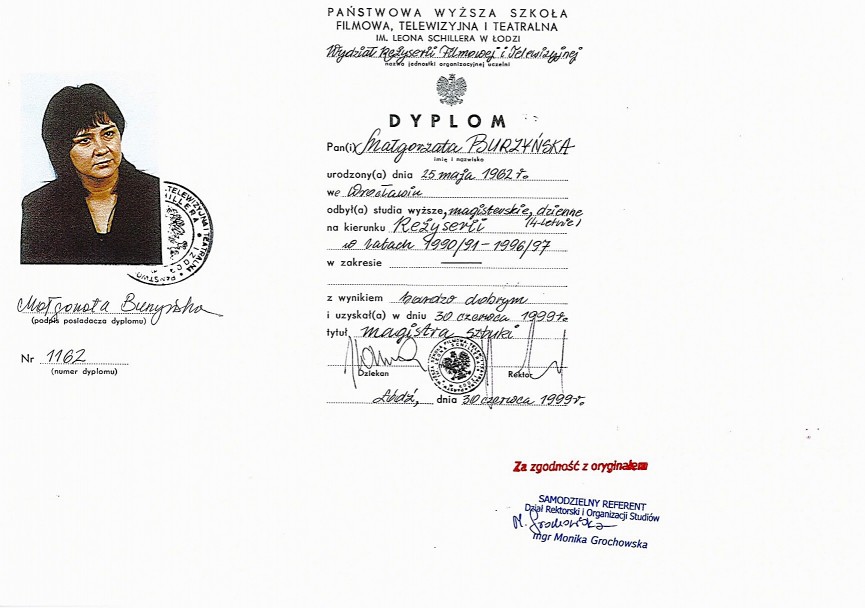 PAŃSTWOWA WYŻSZA SZKOŁA
FILMOWA, TELEWIZYJNA I TEATRALNA
IM. LEONA SCHILLERA W ŁODZI
Wydział Reżyserii Filmowej i Telewizyjnej
nazwa jednostki organizacyjnej uczelni
DYPLOM
Pan(i) Małgorzata BURZYŃSKA
imię i nazwisko
urodzony(a) dnia 25 maja 1962 r.
we Wrocławiu
odbył(a) studia wyższe, magisterskie, dzienne
(4-letnie)
na kierunku Reżyserii
w latach 1990/91-1996/97
w zakresie
z wynikiem bardzo dobrym
i uzyskał(a) w dniu 30 czerwca 1999 r.
tytuł magistra sztuki
Dziekan
Rektor
Łódź, dnia 30 czerwca 1999 r.
Małgorzata Burzyńska
(podpis posiadacza dyplomu)
Nr 1162
(numer dyplomu)
Za zgodność z oryginałem
SAMODZIELNY REFERENT
Dział Rektorski i Organizacji Studiów
M. Grochowska
mgr Monika Grochowska